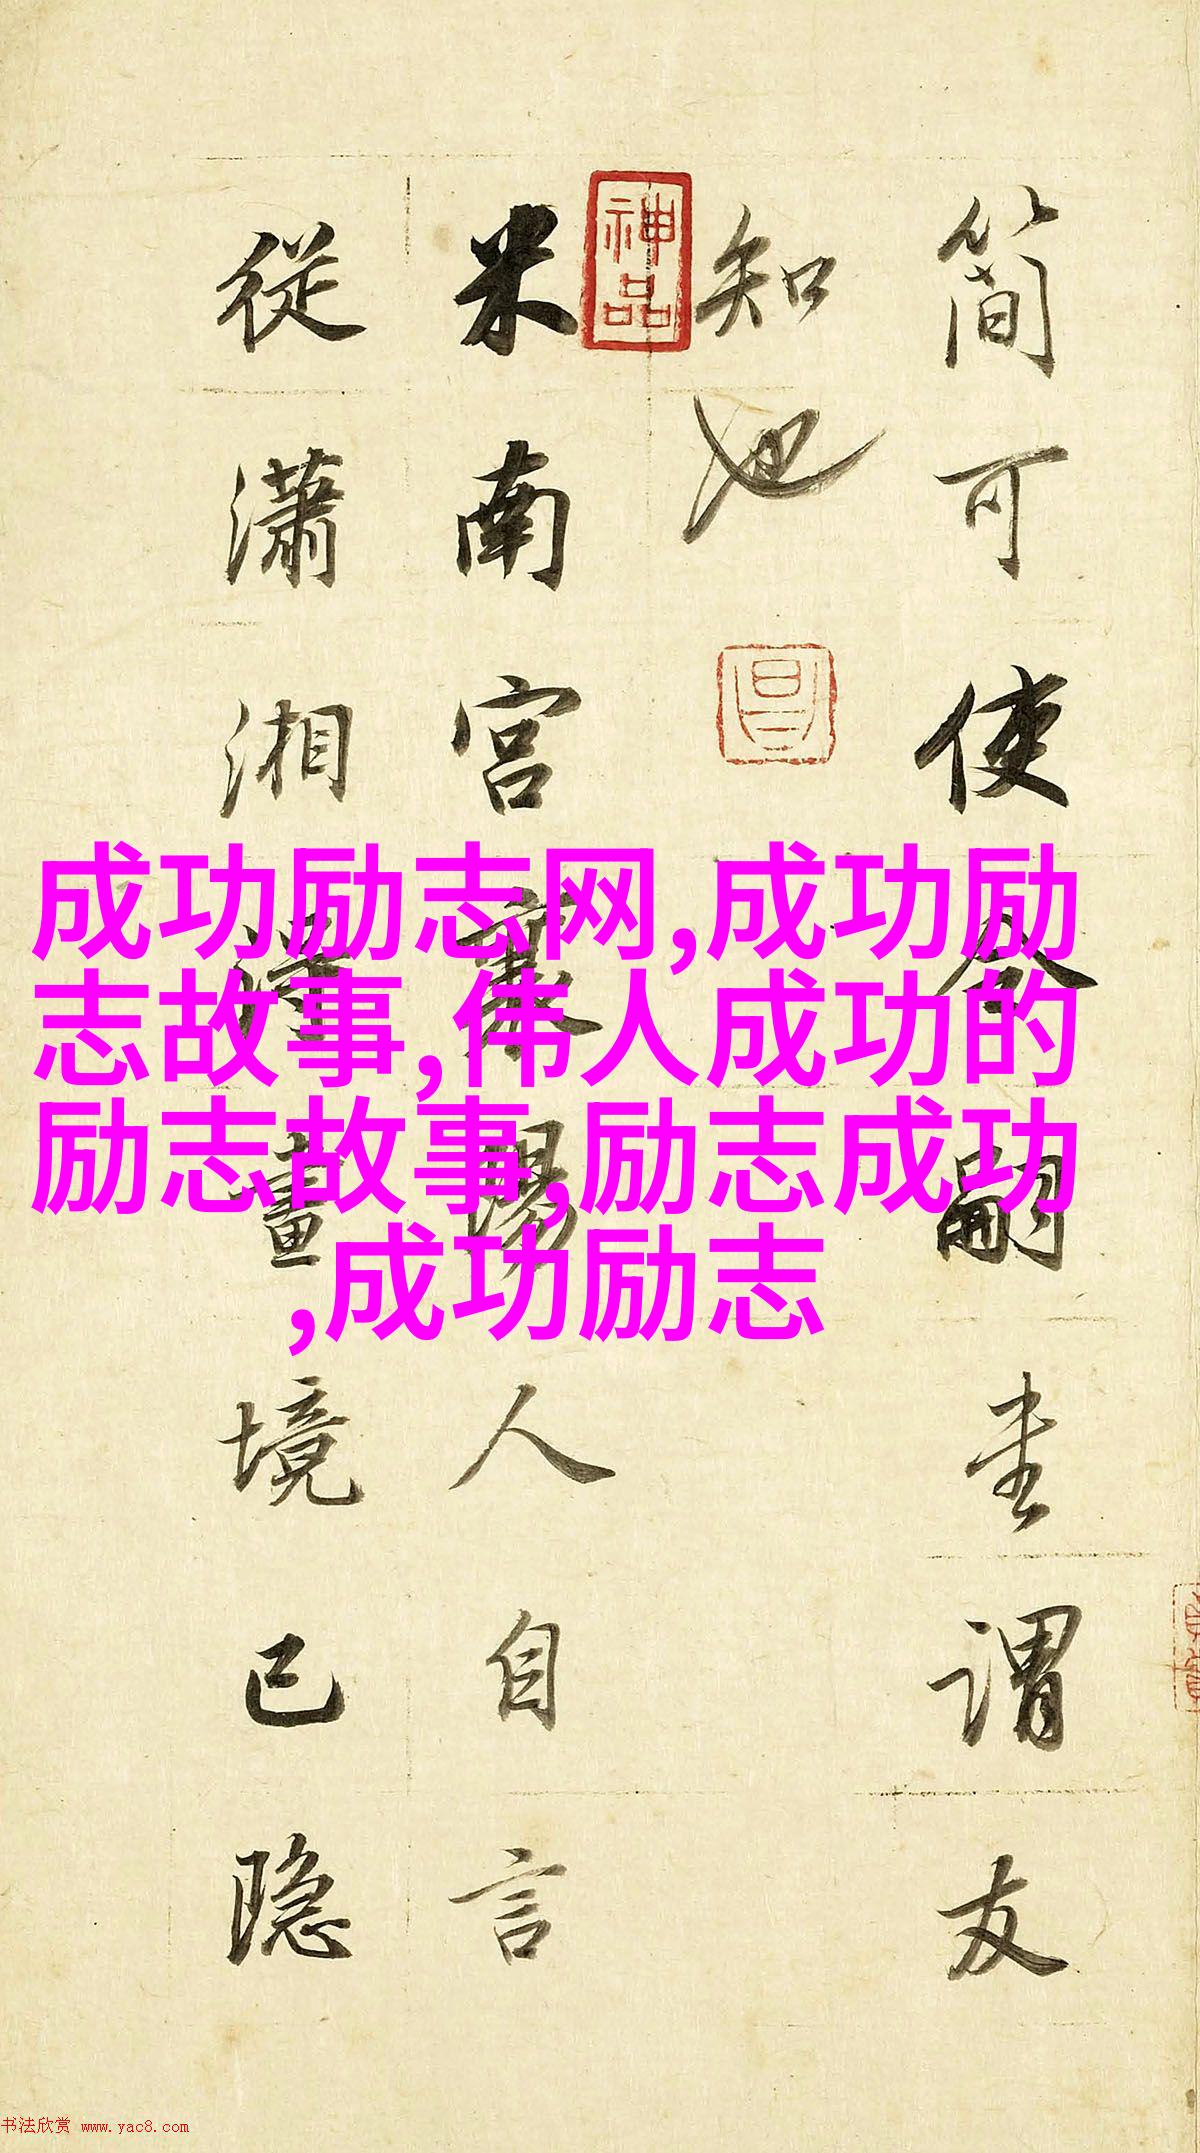 簡可使令嗣書謂友
知也
神品
昌
米南宮襄陽人自言
從瀟湘得畫境已隐
成功励志网,成功励
志故事,伟人成功的
励志故事,励志成功
,成功励志
书法欣赏 www.yac8.com